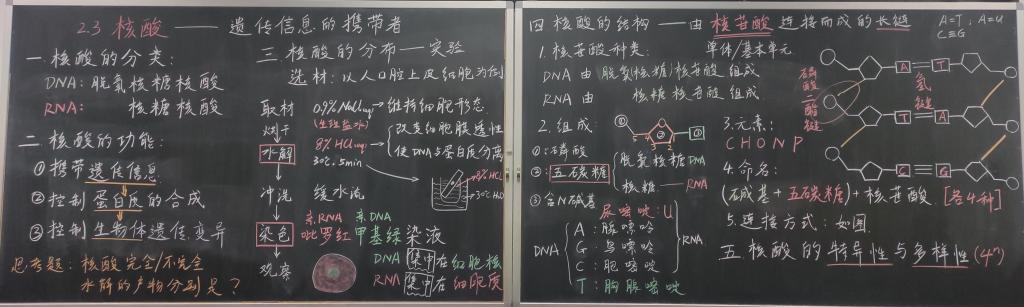 2.3 核酸 —— 遗传信息的携带者
一 核酸的分类:
DNA: 脱氧核糖核酸
RNA: 核糖核酸
二 核酸的功能:
① 携带遗传信息
② 控制蛋白质的合成
③ 控制生物体遗传变异
思考题: 核酸完全/不完全
水解的产物分别是?
三 核酸的分布—实验
选材: 以人口腔上皮细胞为例
取材 0.9% NaCl(aq) → 维持细胞形态
(生理盐水)
烘干
水解 8% HCl(aq) 改变细胞膜透性
30℃, 5min 使DNA与蛋白质分离
8% HCl
30℃ H₂O
冲洗 缓水流
亲RNA 亲DNA
染色 吡罗红 甲基绿 染液
观察
DNA 集中在细胞核
RNA 集中在细胞质
四 核酸的结构 —— 由核苷酸连接而成的长链
A=T, A=U
C≡G
1. 核苷酸种类: 单体/基本单元
DNA 由 脱氧核糖核苷酸 组成
RNA 由 核糖核苷酸 组成
2. 组成:
① ② ③
①: 磷酸
②: 五碳糖
脱氧核糖 DNA
核糖 — RNA
③ 含N碱基
尿嘧啶: U
DNA
A: 腺嘌呤
G: 鸟嘌呤
C: 胞嘧啶
T: 胸腺嘧啶
RNA
3. 元素:
C H O N P
4. 命名:
(碱基 + 五碳糖) + 核苷酸 [各4种]
5. 连接方式: 如图
五 核酸的特异性与多样性 (4ⁿ)
磷酸二酯键
氢键
A T
T A
C G